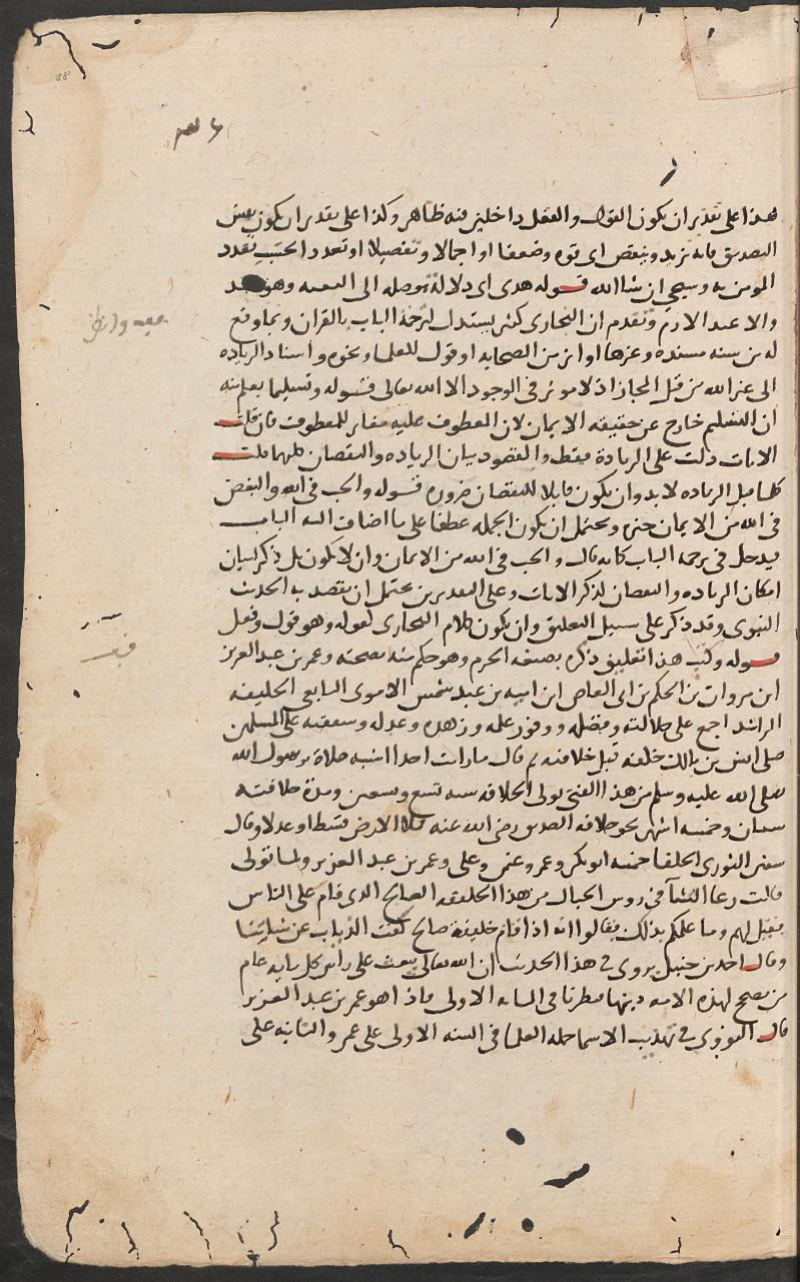 هذا على تقدير ان يكون القول والفعل داخلين فيه ظاهر وكذا على تقدير ان يكون نفس
التصديق فانه يزيد وينقص اى قوه وضعفا او اجمالا وتفصيلا او تعددا بحسب تعدد
المومن به وسيجى ان شا الله قوله هدى اى دلالة موصله الى البغيه وهو
والا عبد الازم وتقدم ان البخارى كثير يستدل لترجمة الباب بالقران وبما وقع
له من سنه مسنده وغيرها او اثر من الصحابه او قول للعلما ونحوه واسناد الزياده
الى غير الله من قبل المجاز اذ لا موثر فى الوجود الا الله تعالى قوله وتسليما يعلم منه
ان التسليم خارج عن حقيقه الايمان لان المعطوف عليه مغاير للمعطوف فان قلت
الايات دلت على الزيادة فقط والمقصود بيان الزياده والنقصان كليهما قلت
كلما قبل الزياده لا بد وان يكون قابلا للنقصان ضرورة قوله والحب فى الله والبغض
فى الله من الايمان خبر ويحتمل ان يكون الجمله عطفا على ما اضاف اليه الباب
فيدخل فى ترجمه الباب كانه قال والحب فى الله من الايمان وان لا يكون بل ذكر لبيان
امكان الزياده والنقصان لذكر الايات وعلى التقديرين يحتمل ان يقصد به الحديث
النبوى وقد ذكر على سبيل التعليق وان يكون كلام البخارى لقوله وهو قول وفعل
قوله وكتب هذا تعليق ذكره بصيغه الجزم وهو حكم منه بصحته وعمر بن عبد العزيز
ابن مروان بن الحكم بن ابى العاص ابن اميه بن عبد شمس الاموى التابعى الخليفه
الراشد اجمع على جلالته وفضله ووفور علمه وزهده وعدله وشفقته على المسلمين
صلى انس بن مالك خلفه قبل خلافته ثم قال ما رايت احدا اشبه صلاة برسول الله
صلى الله عليه وسلم من هذا الفتى تولى الخلافه سنه تسع وتسعين ومدة خلافته
سنتان وخمسه اشهر نحو خلافه الصديق رضى الله عنه ملا الارض قسطا وعدلا وقال
سفين الثورى الخلفا خمسه ابو بكر وعمر وعثمن وعلى وعمر بن عبد العزيز ولما تولى
قالت رعا الشآ فى روس الجبال من هذا الخليفه الصالح الذى قام على الناس
فقيل لهم وما علمكم بذلك فقالوا انه اذا قام خليفة صالح كفت الذياب عن شياهنا
وقال احمد بن حنبل يروى فى هذا الحديث ان الله تعالى يبعث على راس كل مايه عام
من يصحح لهذه الامه دينها فنظرنا فى المايه الاولى فاذا هو عمر بن عبد العزيز
قال النووى فى تهذيب الاسما حمله العلما فى السنه الاولى على عمر والثانيه على